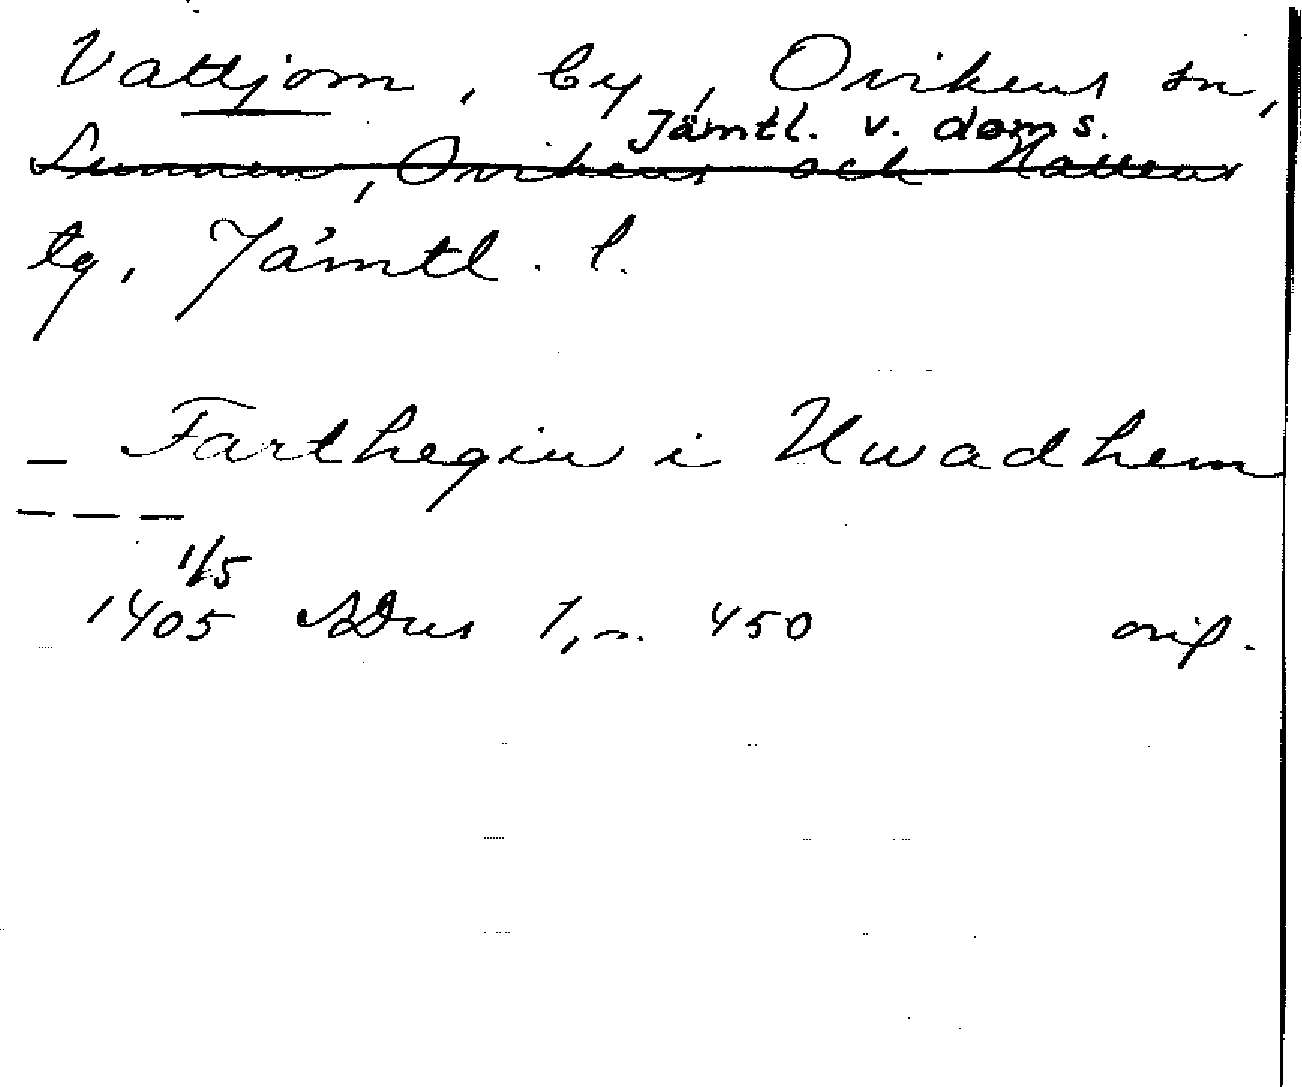 Vattjom, by, Ovikens sn,
Jämtl. v. doms.
Sunnen, Ovikens och Hallens
tg, Jämtl. l.
– Farthegin i Hwadhem
– – –
1/5
1405 SDns 1, n. 450 orig.